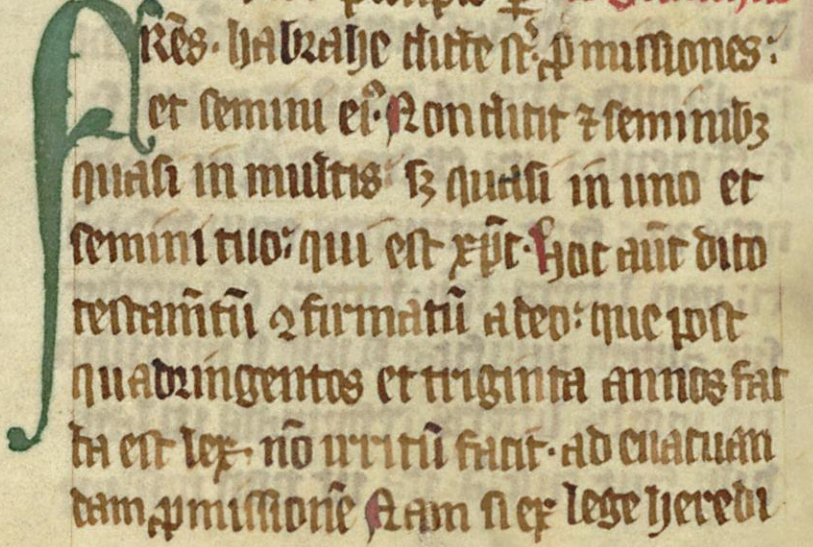 FRēs. habrahe dicte st᷒. ꝓmissiones:
et semini ei᷒. Non dicit ⁊ seminibꝫ
quasi in multis: sꝫ quasi in uno et
semini tuo: qui est xp̄c. hoc aūt dico
testam̄tū ꝯfirmatū a deo: que post
quadringentos et triginta annos fac
ta est lex. nō irritū facit. ad euacuan
dam ꝓmissionē Nam si ex lege heredi